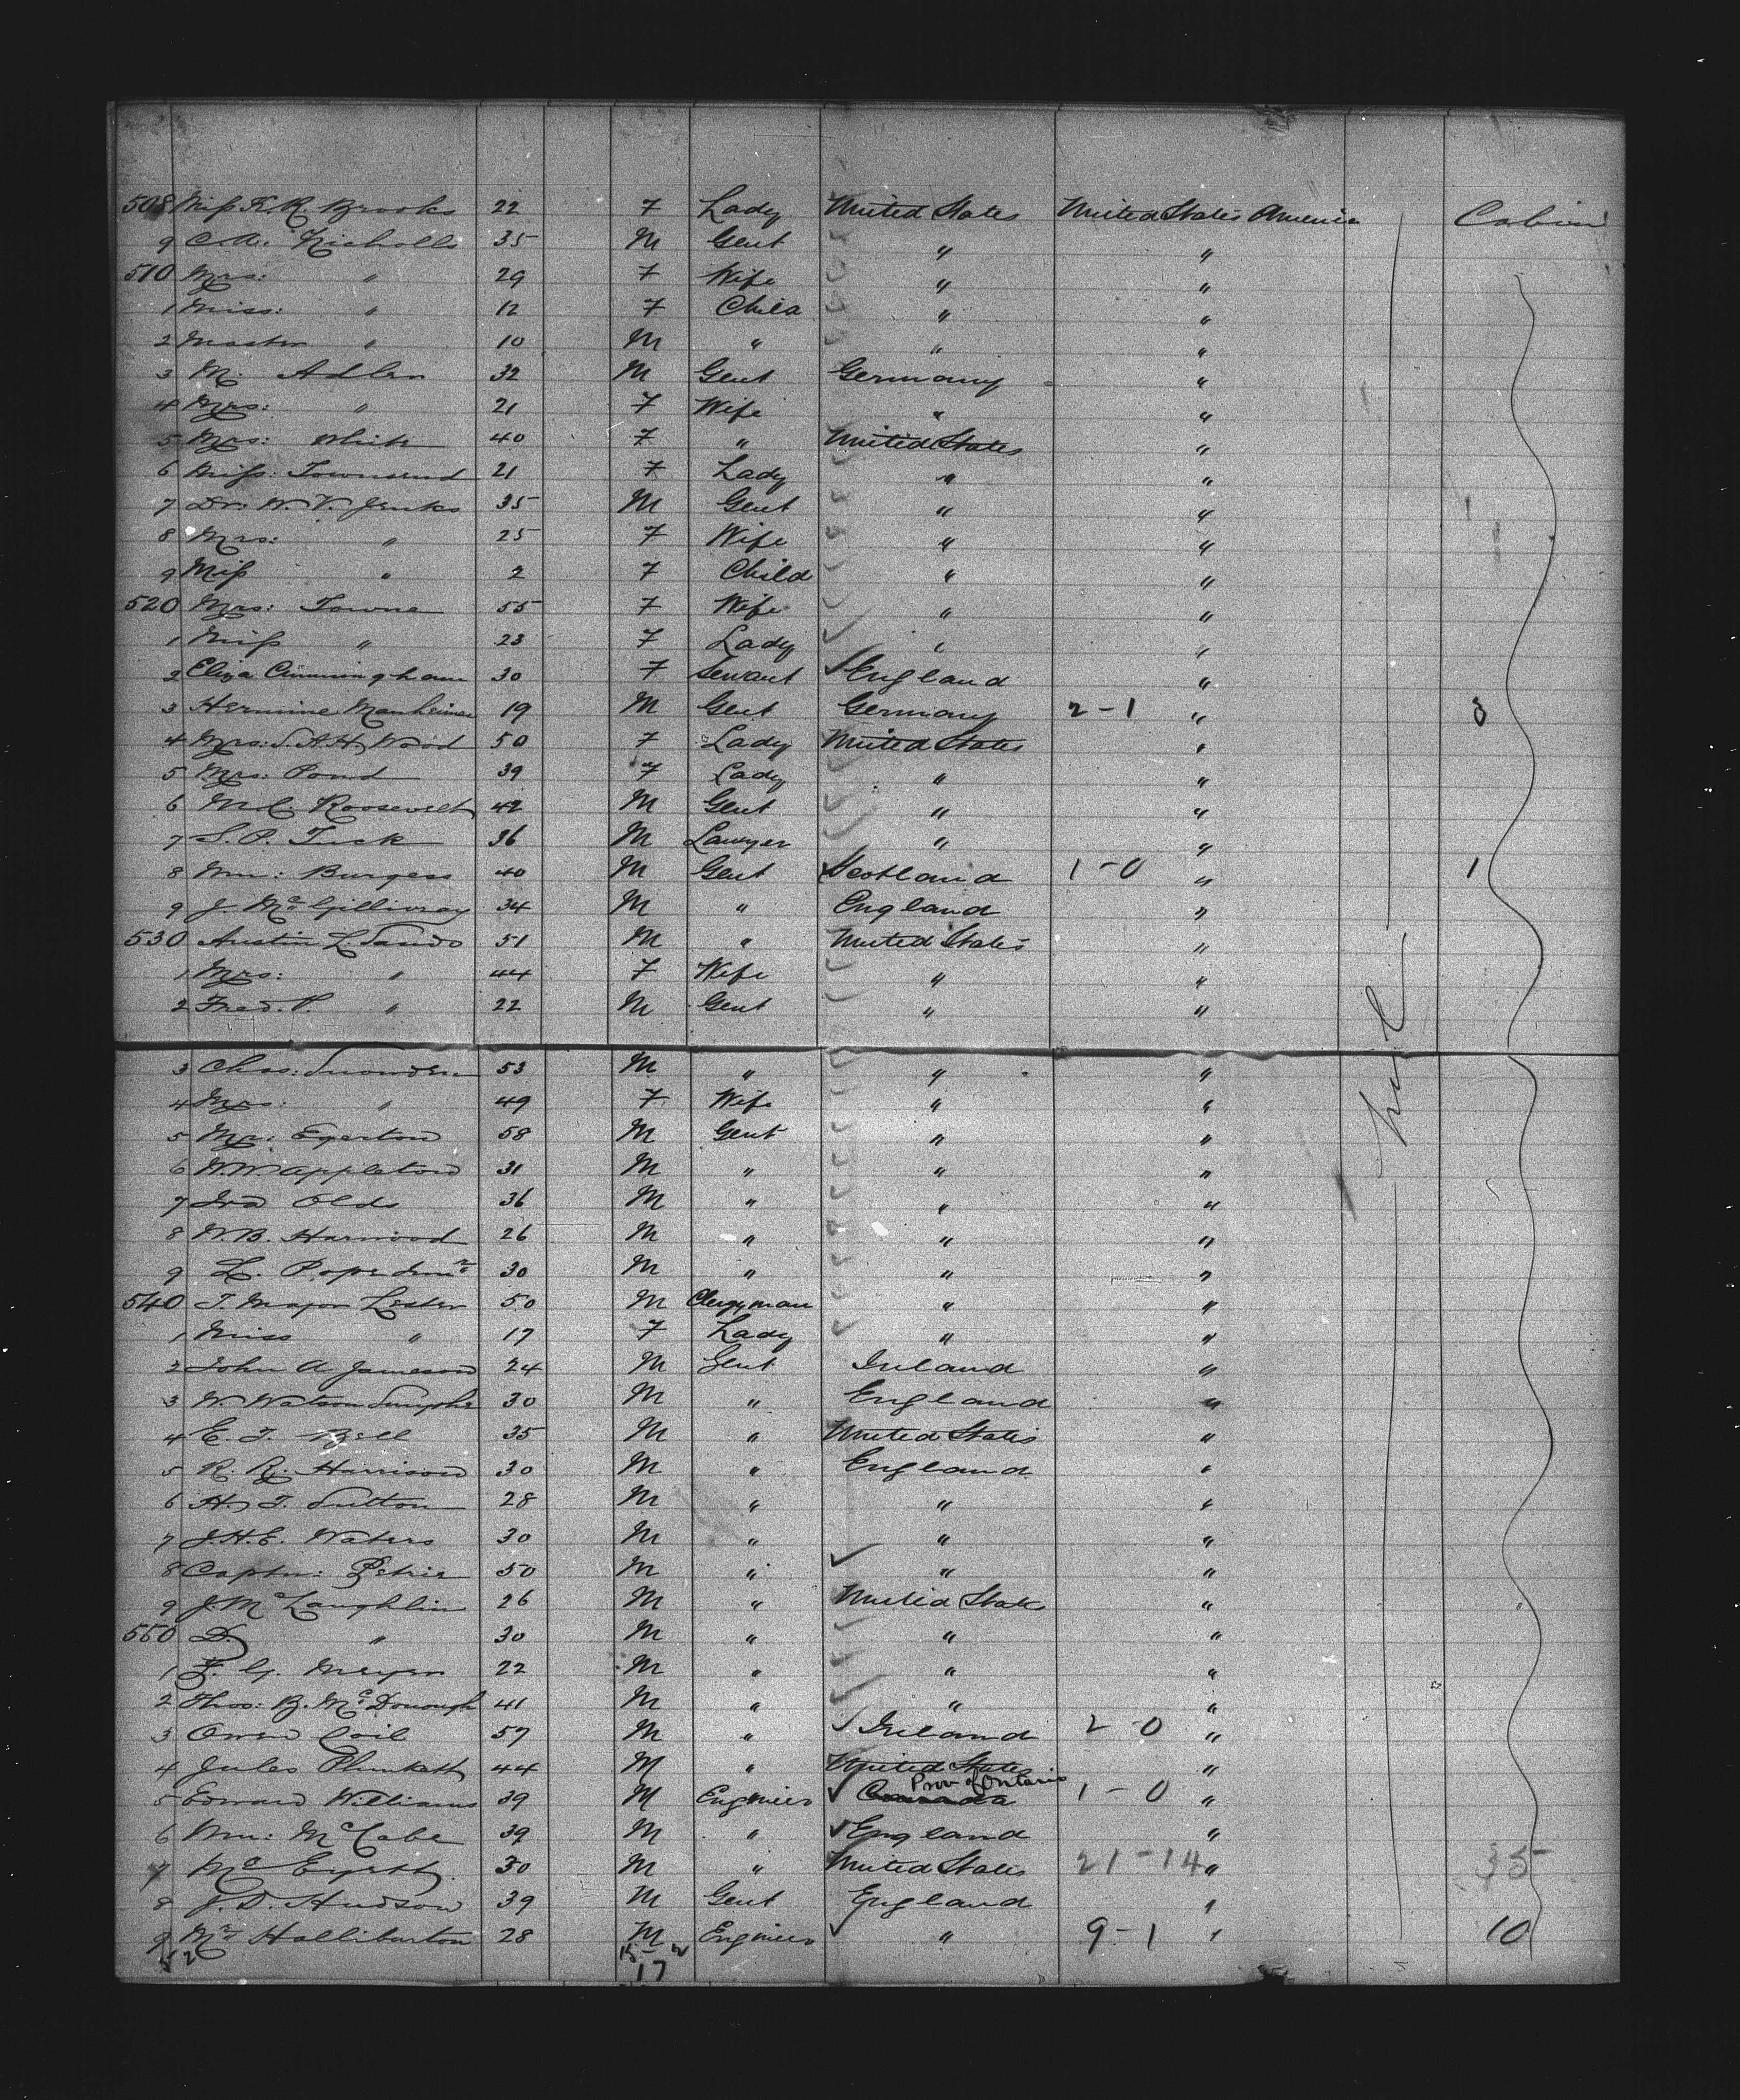 508 Miss K. R. Brooks 22 F Lady United States United States America Cabin
9 C. A. Nicholls 35 M Gent " "
510 Mrs: " 29 F Wife " "
1 Miss: " 12 F Child " "
2 Master " 10 M " " "
3 M. Adler 32 M Gent Germany "
4 Mrs: " 21 F Wife " "
5 Mrs: White 40 F " United States "
6 Miss: Townsend 21 F Lady " "
7 Dr. W. V. Jenks 35 M Gent " "
8 Mrs: " 25 F Wife " "
9 Miss " 2 F Child " "
520 Mrs: Towne 55 F Wife " "
1 Miss " 23 F Lady " "
2 Eliza Cunningham 30 F Servant England "
3 Hermine Manheimer 19 M Gent Germany 2-1 " 3
4 Mrs: S. A. H. Wood 50 F Lady United States "
5 Mrs: Pond 39 F Lady " "
6 Roosevelt 42 M Gent " "
7 S. P. Tuck 36 M Lawyer " "
8 Wm: Burgess 40 M Gent Scotland 1-0 " 1
9 J. McGillivray 34 M " England "
530 Austin L. Sands 51 M " United States "
1 Mrs: " 44 F Wife " "
2 Fred. P. " 22 M Gent " "
3 Chas: Snowden 53 M " " "
4 Mrs: " 49 F Wife " "
5 Mr: Egerton 58 M Gent " "
6 W. W. Appleton 31 M " " "
7 Ira Olds 36 M " " "
8 W B. Harwood 26 M " " "
9 L. Pope 30 M " " "
540 T. Major Lester 50 M Clergyman " "
1 Miss " 17 F Lady " "
2 John A Jameson 24 M Gent Ireland "
3 W. Watson 30 M " England "
4 E. T. Bell 35 M " United States "
5 R. R. Harrison 30 M " England "
6 H. T. Sutton 28 M " " "
7 J. H. E. Waters 30 M " " "
8 Captn: Petrie 50 M " " "
9 J. McLaughlin 26 M " United States "
550 D. " 30 M " " "
1 F. G. Meyer 22 M " " "
2 Thos: B. McDonough 41 M " " "
3 Owen Coil 57 M " Ireland 2-0 "
4 Jules Plunkett 44 M " United States "
5 Edward Williams 39 M Engineer Canada Prov of Ontario 1-0 "
6 Wm: McCabe 39 M " England "
7 30 M " United States 21-14 " 35
8 J. D. Hudson 39 M Gent England "
9 Mr Halliburton 28 M Engineer " 9-1 " 10
52 15-2
17